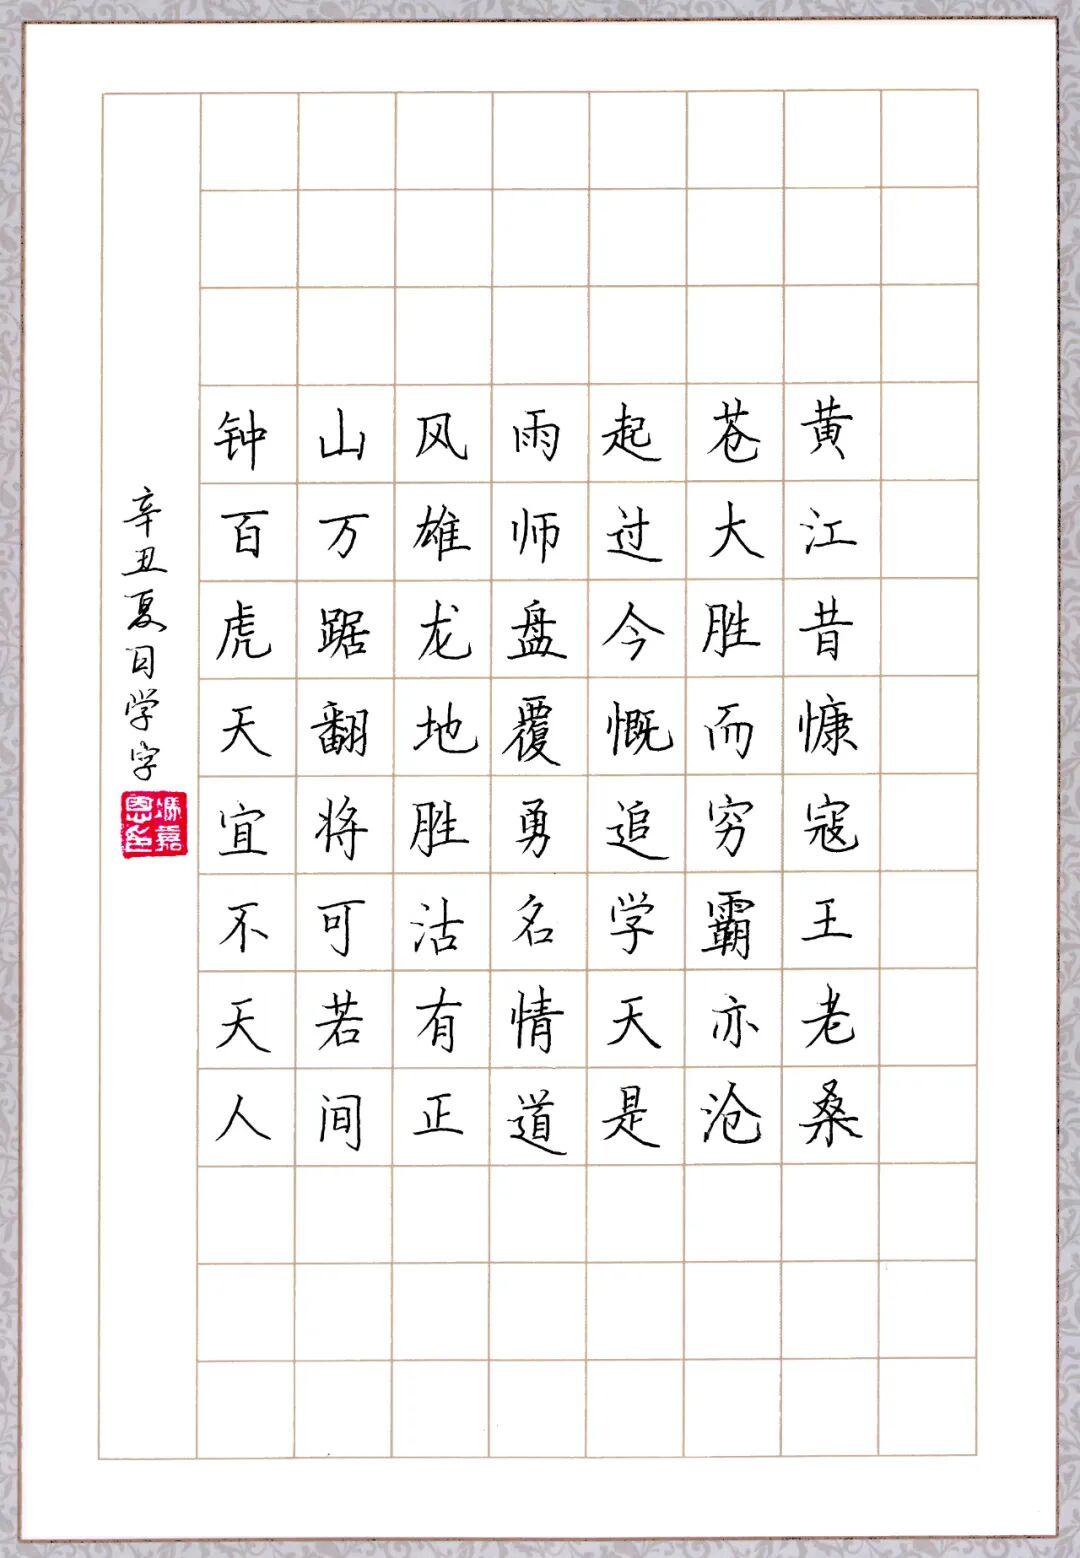 钟山风雨起苍黄
百万雄师过大江
虎踞龙盘今胜昔
天翻地覆慨而慷
宜将胜勇追穷寇
不可沽名学霸王
天若有情天亦老
人间正道是沧桑
辛丑夏日学字